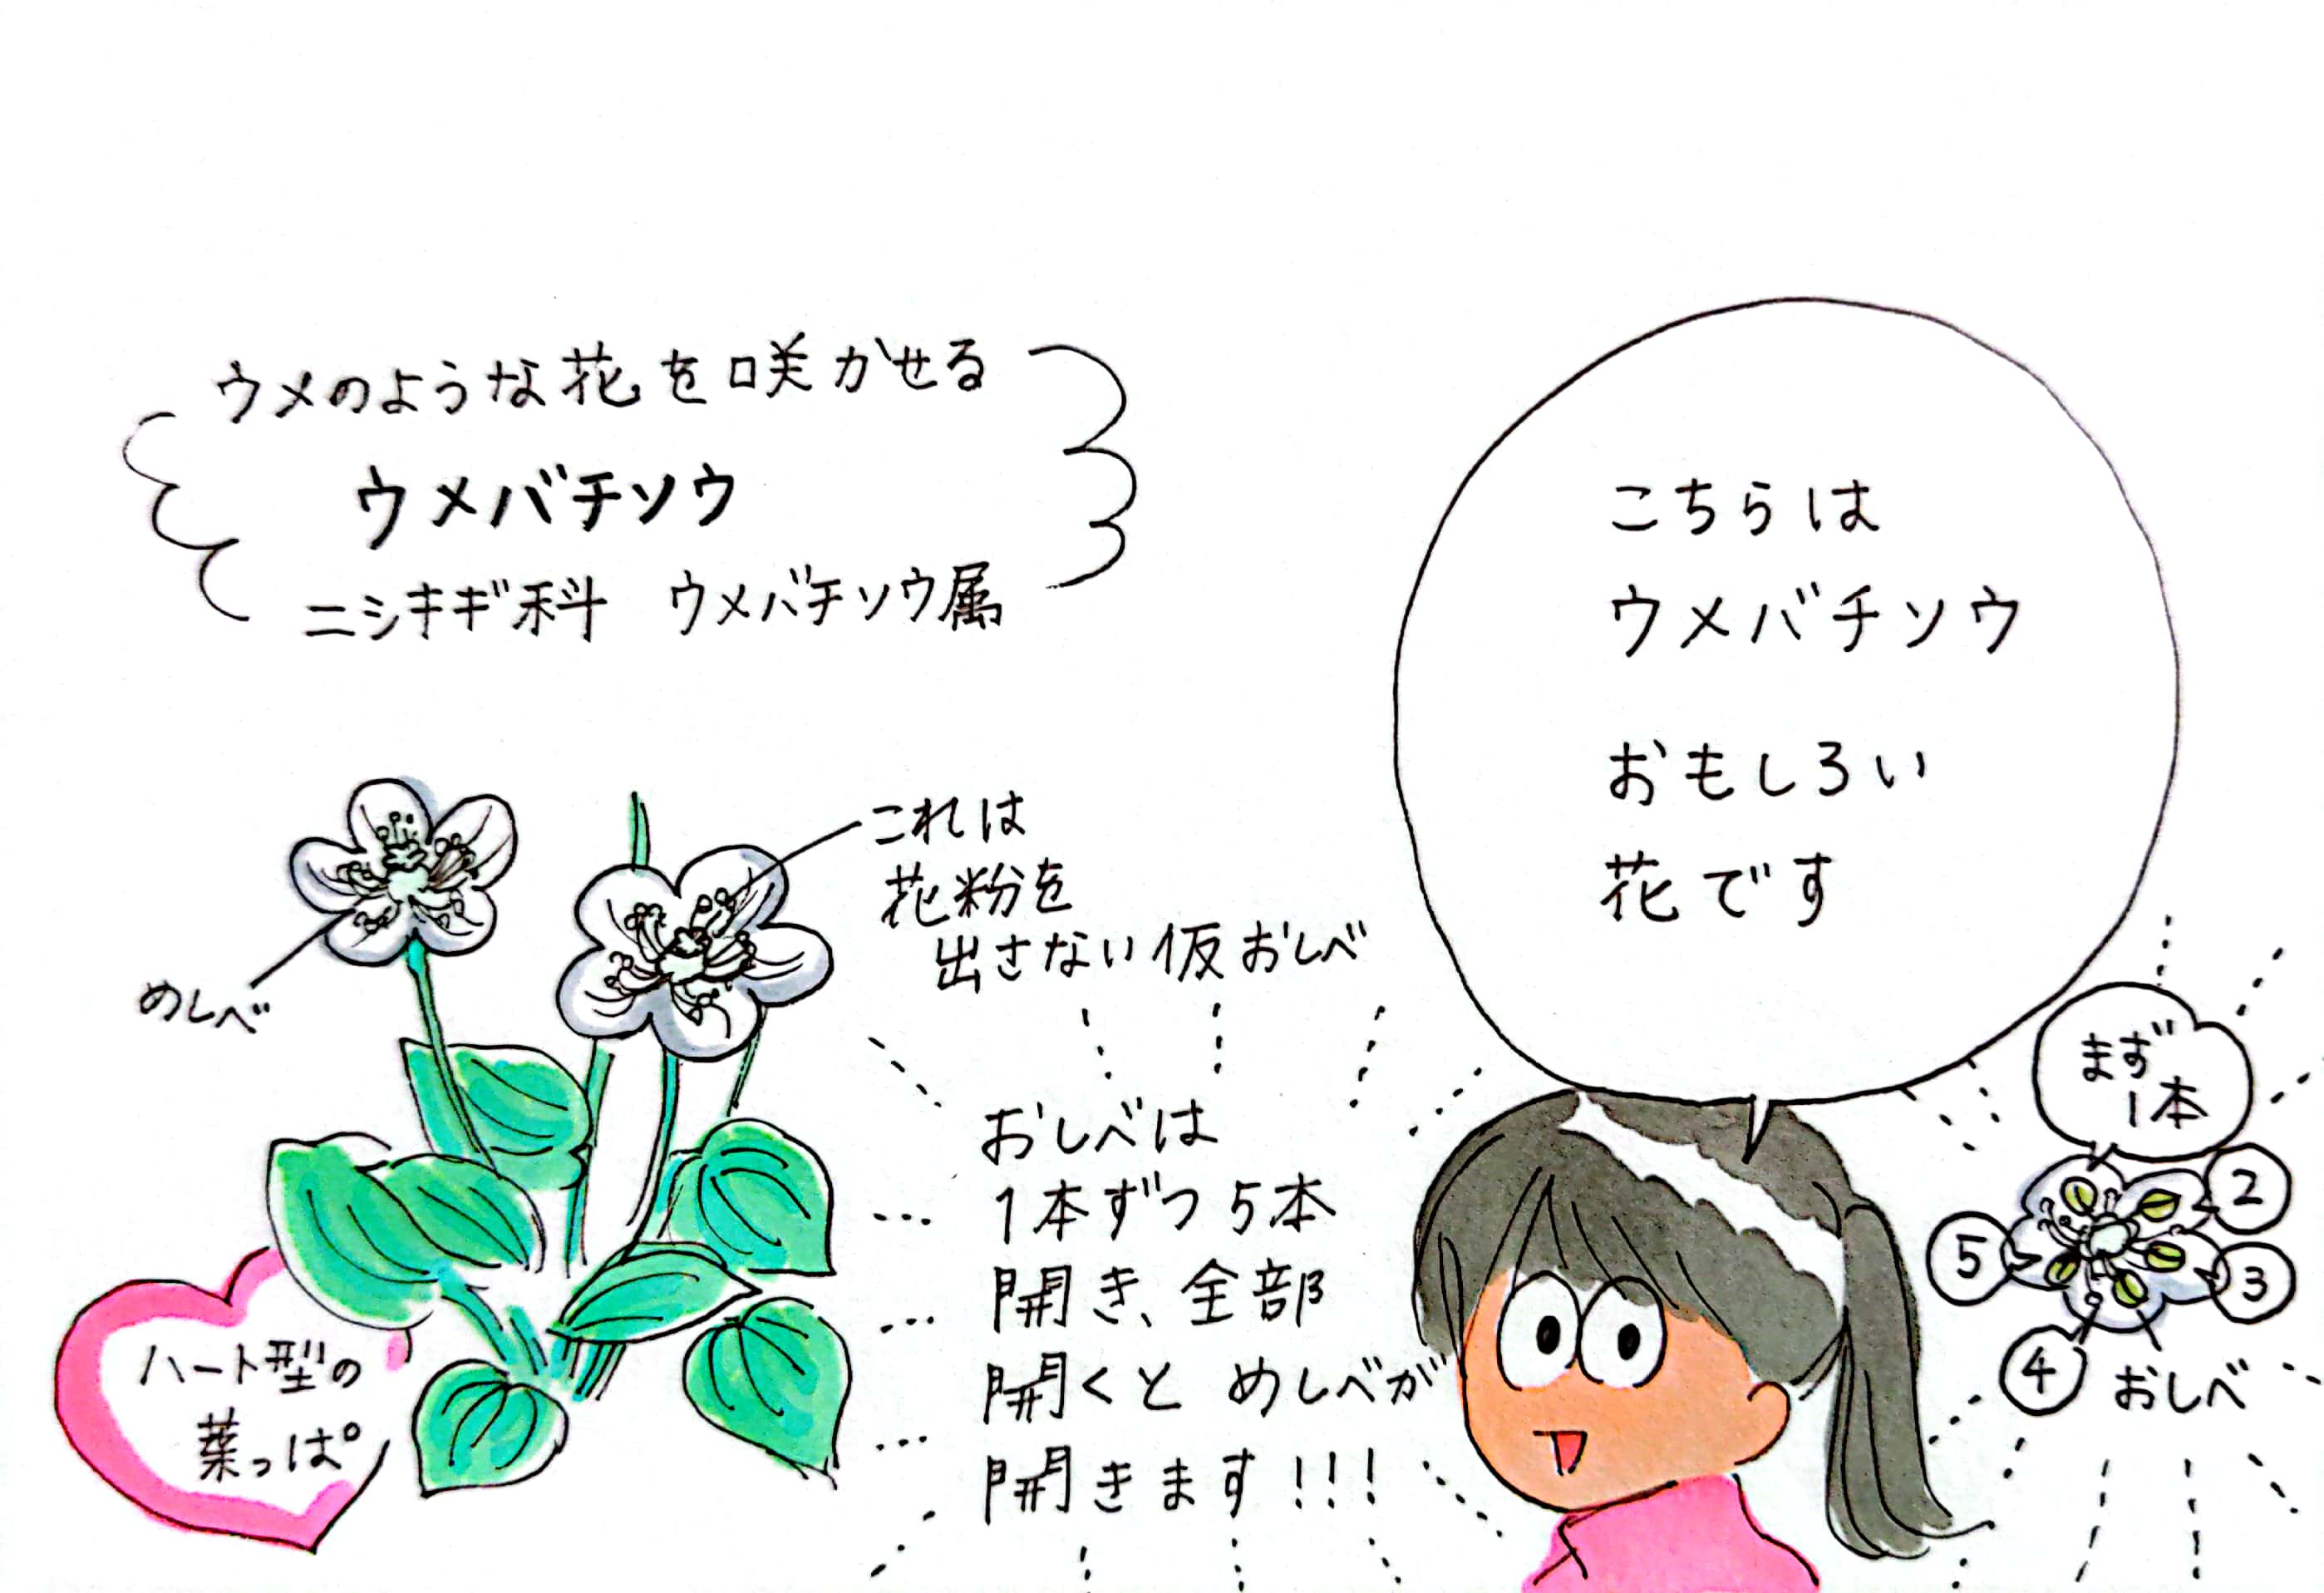 ウメのような花を咲かせる
ウメバチソウ
ニシキギ科 ウメバチソウ属
こちらは
ウメバチソウ
おもしろい
花です
これは
花粉を
出さない仮おしべ
めしべ
ハート型の
葉っぱ
おしべは
1本ずつ5本
開き、全部
開くと めしべが
開きます!!!
まず
1本
②
③
④
⑤
おしべ